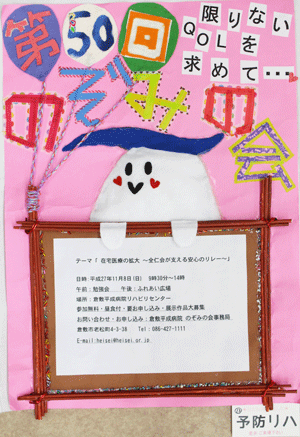 第50回
限りない
QOLを
求めて…
のぞみの会
テーマ「 在宅医療の拡大 ～全仁会が支える安心のリレー～」
日時：平成27年11月8日（日） 9時30分～14時
午前：勉強会 午後：ふれあい広場
場所：倉敷平成病院リハビリセンター
参加無料・昼食付・要お申し込み・展示作品大募集
お問い合わせ・お申し込み：倉敷平成病院 のぞみの会事務局
倉敷市老松町4-3-38 Tel：086-427-1111
E-mail:heisei@heisei.or.jp
予防リハ